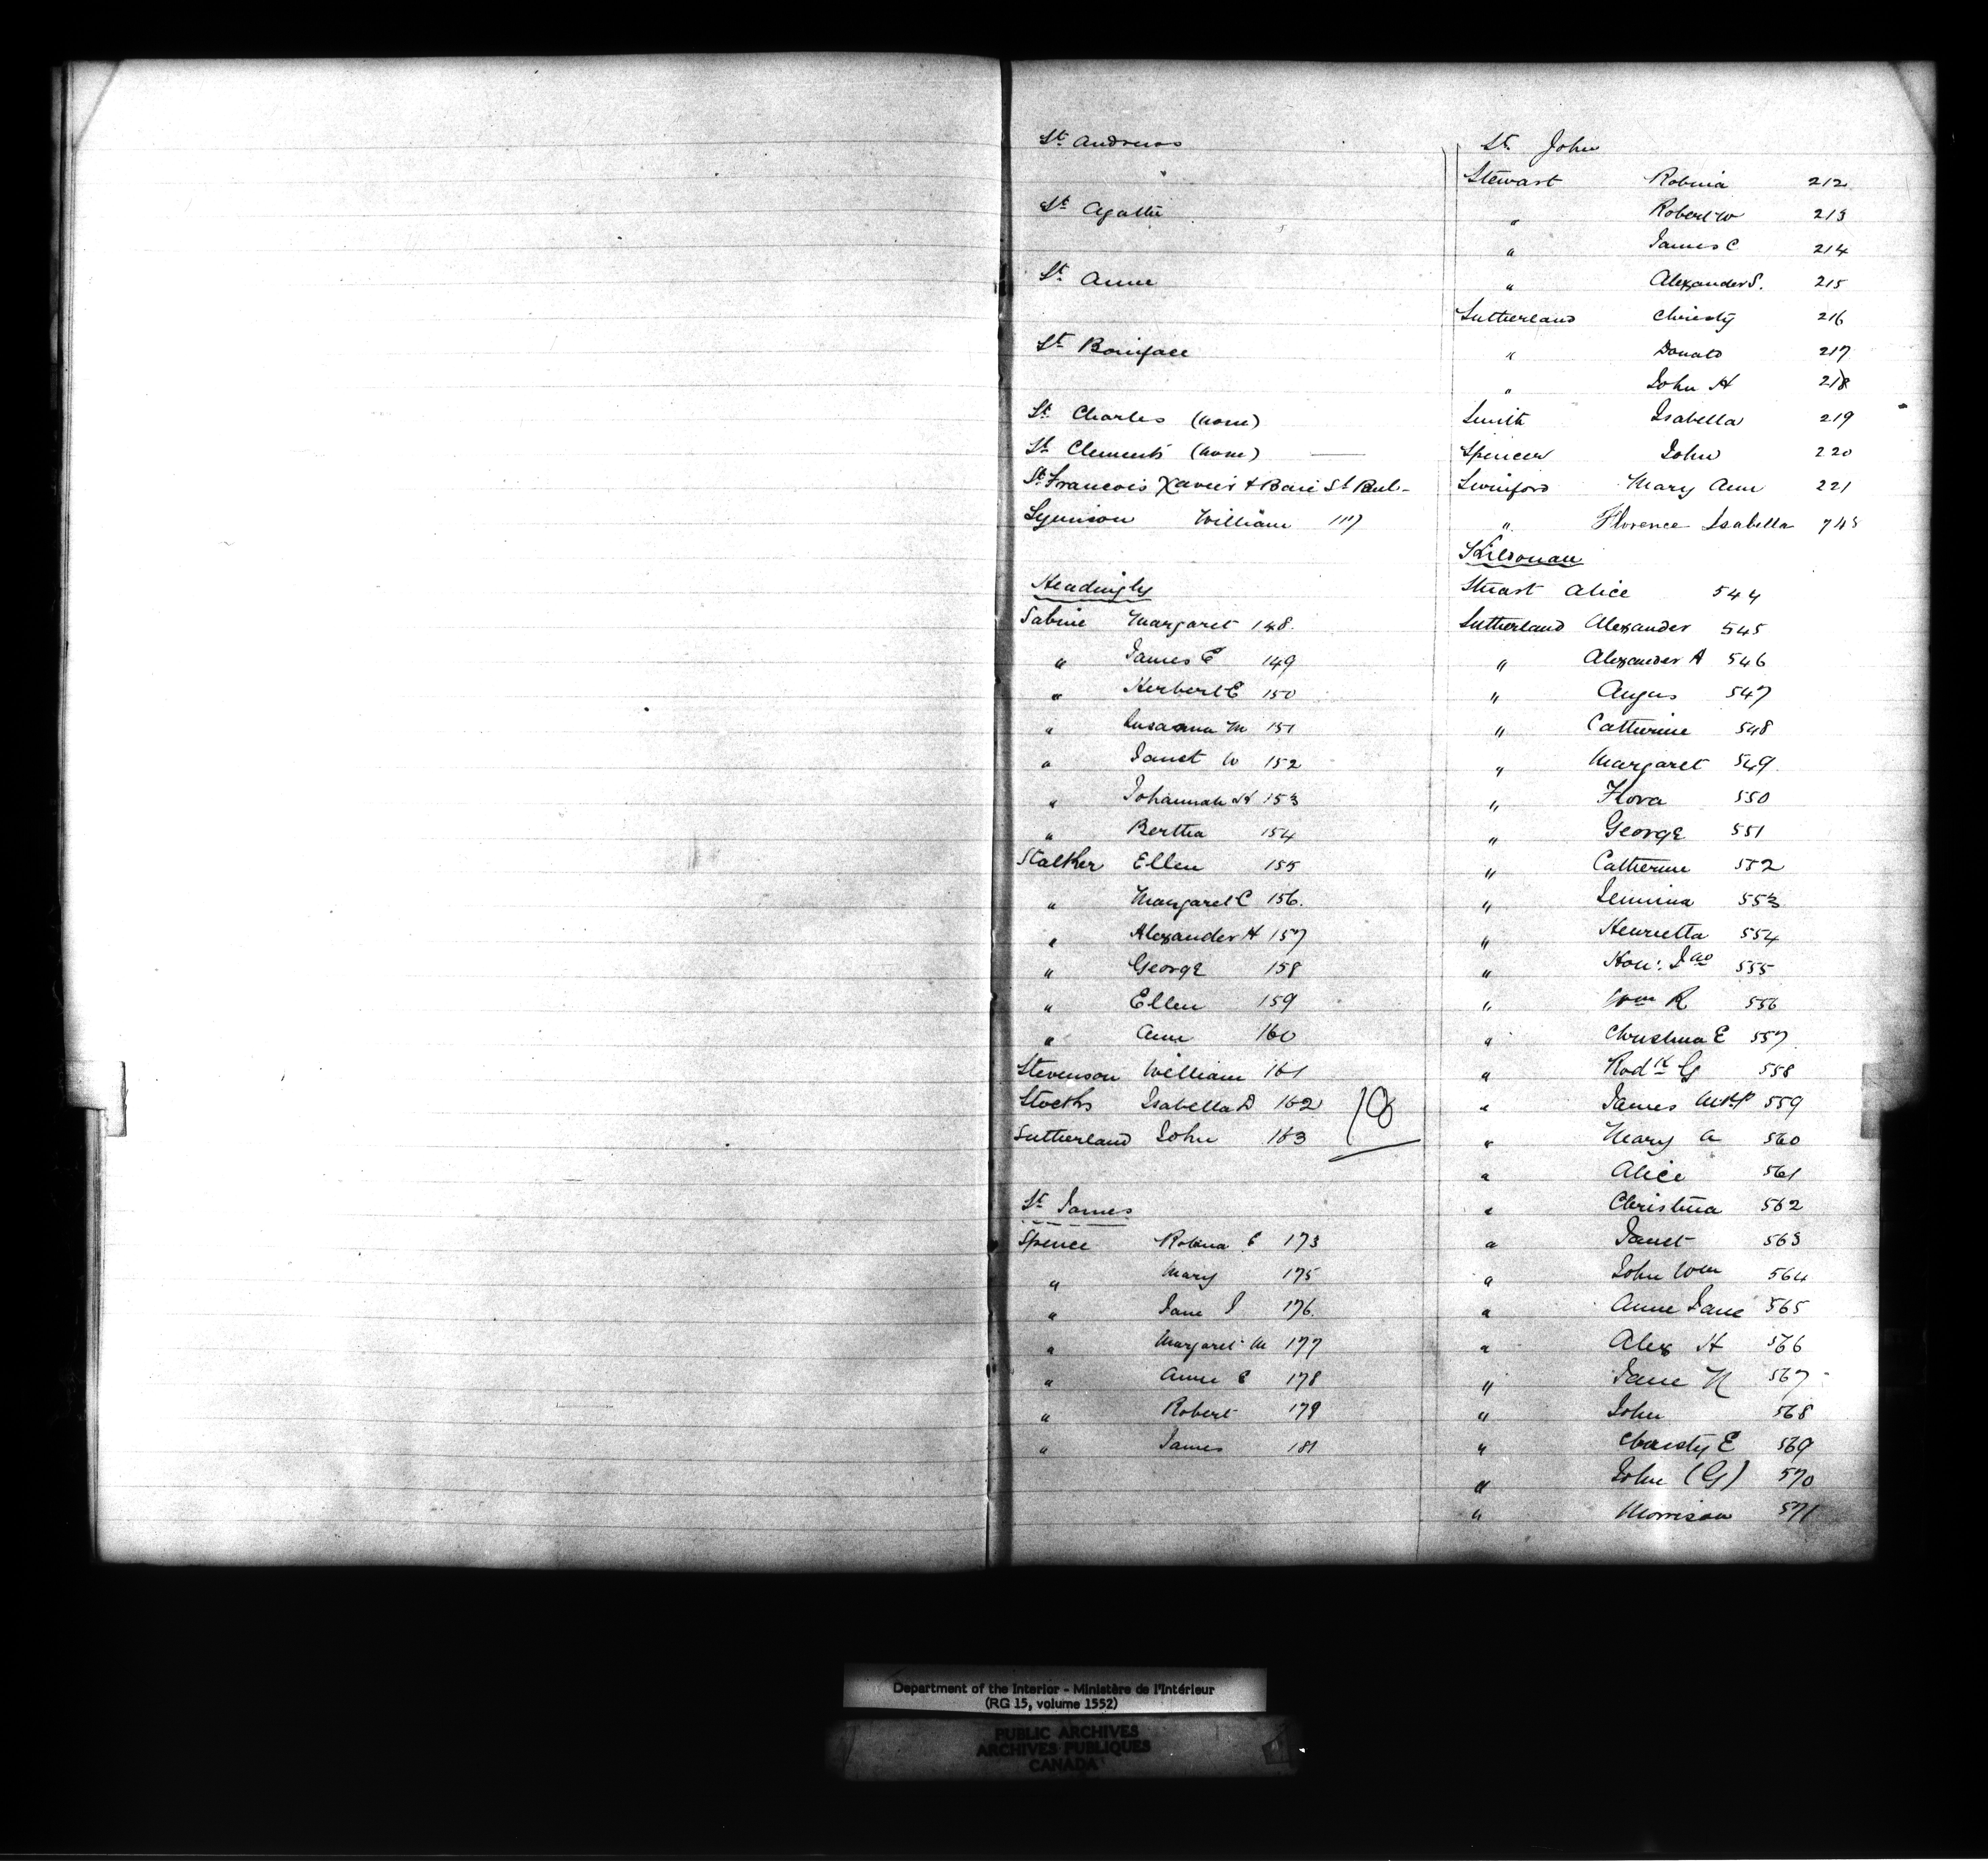 St Andrews
St Agathe
St Anne
St Boniface
St Charles (none)
St Clements (none) —
St Francois Xavier & Baie St Paul-
William 117
Headingly
Sabine Margaret 148.
" James E 149
" Herbert E 150
" Susanna M 151
" Janet W 152
" Johannah H 153
" Bertha 154
Stalker Ellen 155
" Margaret C 156.
" Alexander H 157
" George 158
" Ellen 159
" Ann 160
Stevenson William 161
Stocks Isabella D 162
Sutherland John 163
18
St James
Spence Robina C 173
" Mary 175
" Jane I 176.
" Margaret M 177
" Anne C 178
" Robert 179
" James 181
St John
Stewart Robina 212
" Robert W 213
" James C 214
" Alexander S. 215
Sutherland Christy 216
" Donald 217
" John H 218
Smith Isabella 219
Spencer John 220
Swinford Mary Ann 221
" Florence Isabella 745
Kildonan
Stuart Alice 544
Sutherland Alexander 545
" Alexander A 546
" Angus 547
" Catherine 548
" Margaret 549.
" Flora 550
" George 551
" Catherine 552
" Jemima 553
" Henrietta 554
" Hon: Jno 555
" Wm R 556
" Christina E 557
" Rodk G 558
" James McKP 559
" Mary A 560
" Alice 561
" Christina 562
" Janet 563
" John Wm 564
" Anne Jane 565
" Alex H 566
" Jane N 567
" John 568
" Christy E 569
" John (G) 570
" Morrison 571
Department of the Interior - Ministère de l'Intérieur
(RG 15, volume 1552)
PUBLIC ARCHIVES
ARCHIVES PUBLIQUES
CANADA